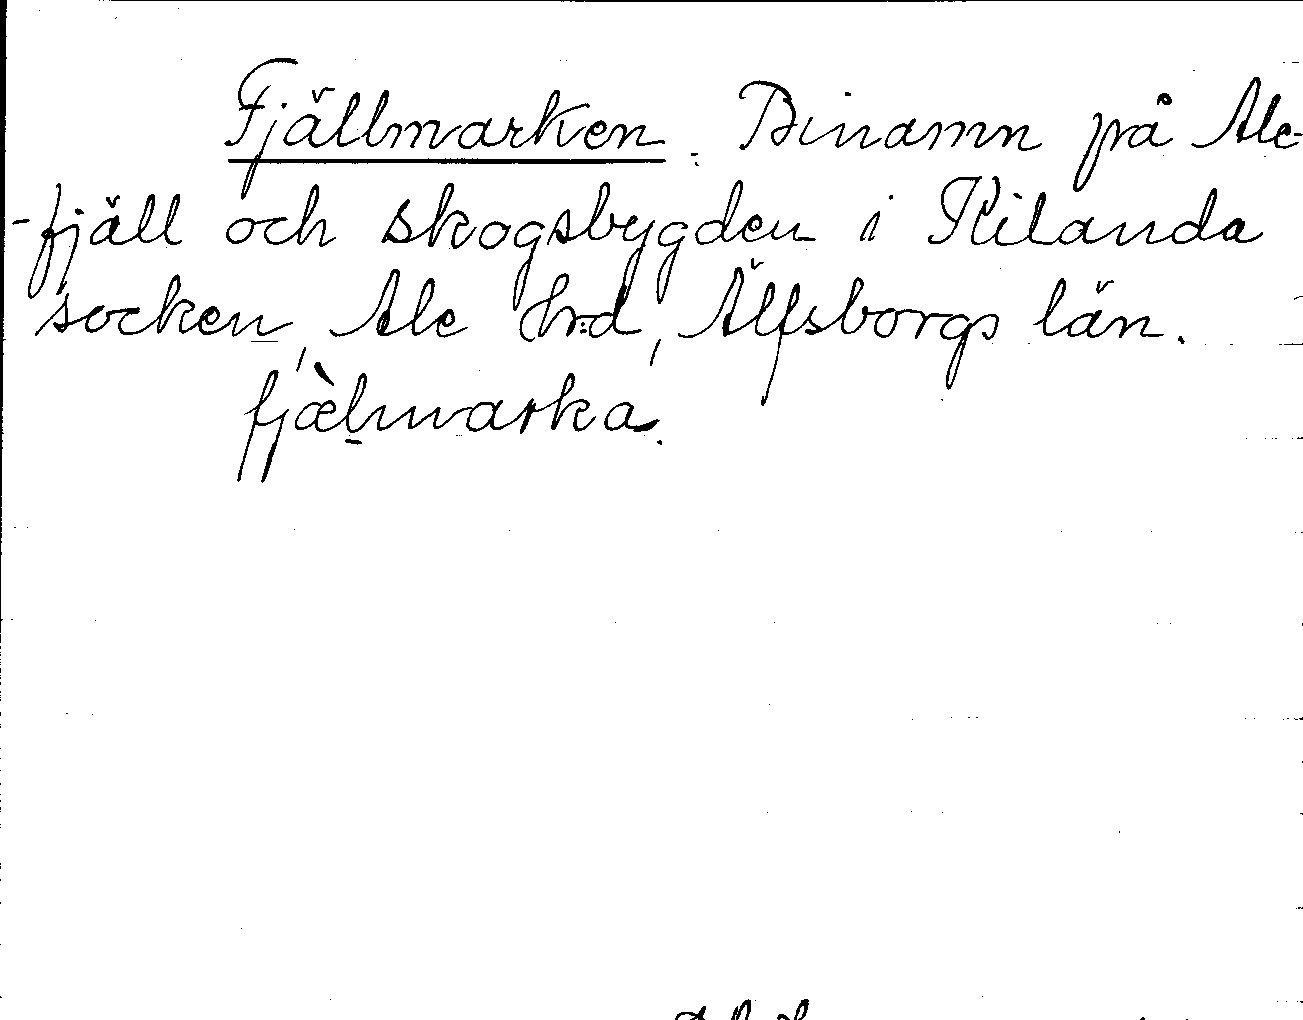 Fjällmarken. Binamn på Ale-
-fjäll och skogsbygden i Kilanda
socken, Ale Hrd, Älfsborgs län.
fjæ̀l̠marka.